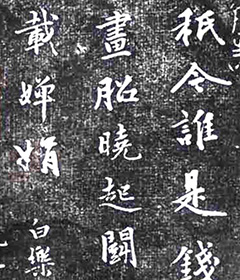 秖今誰是錢
畫船曉起鬬
載嬋娟
白樂